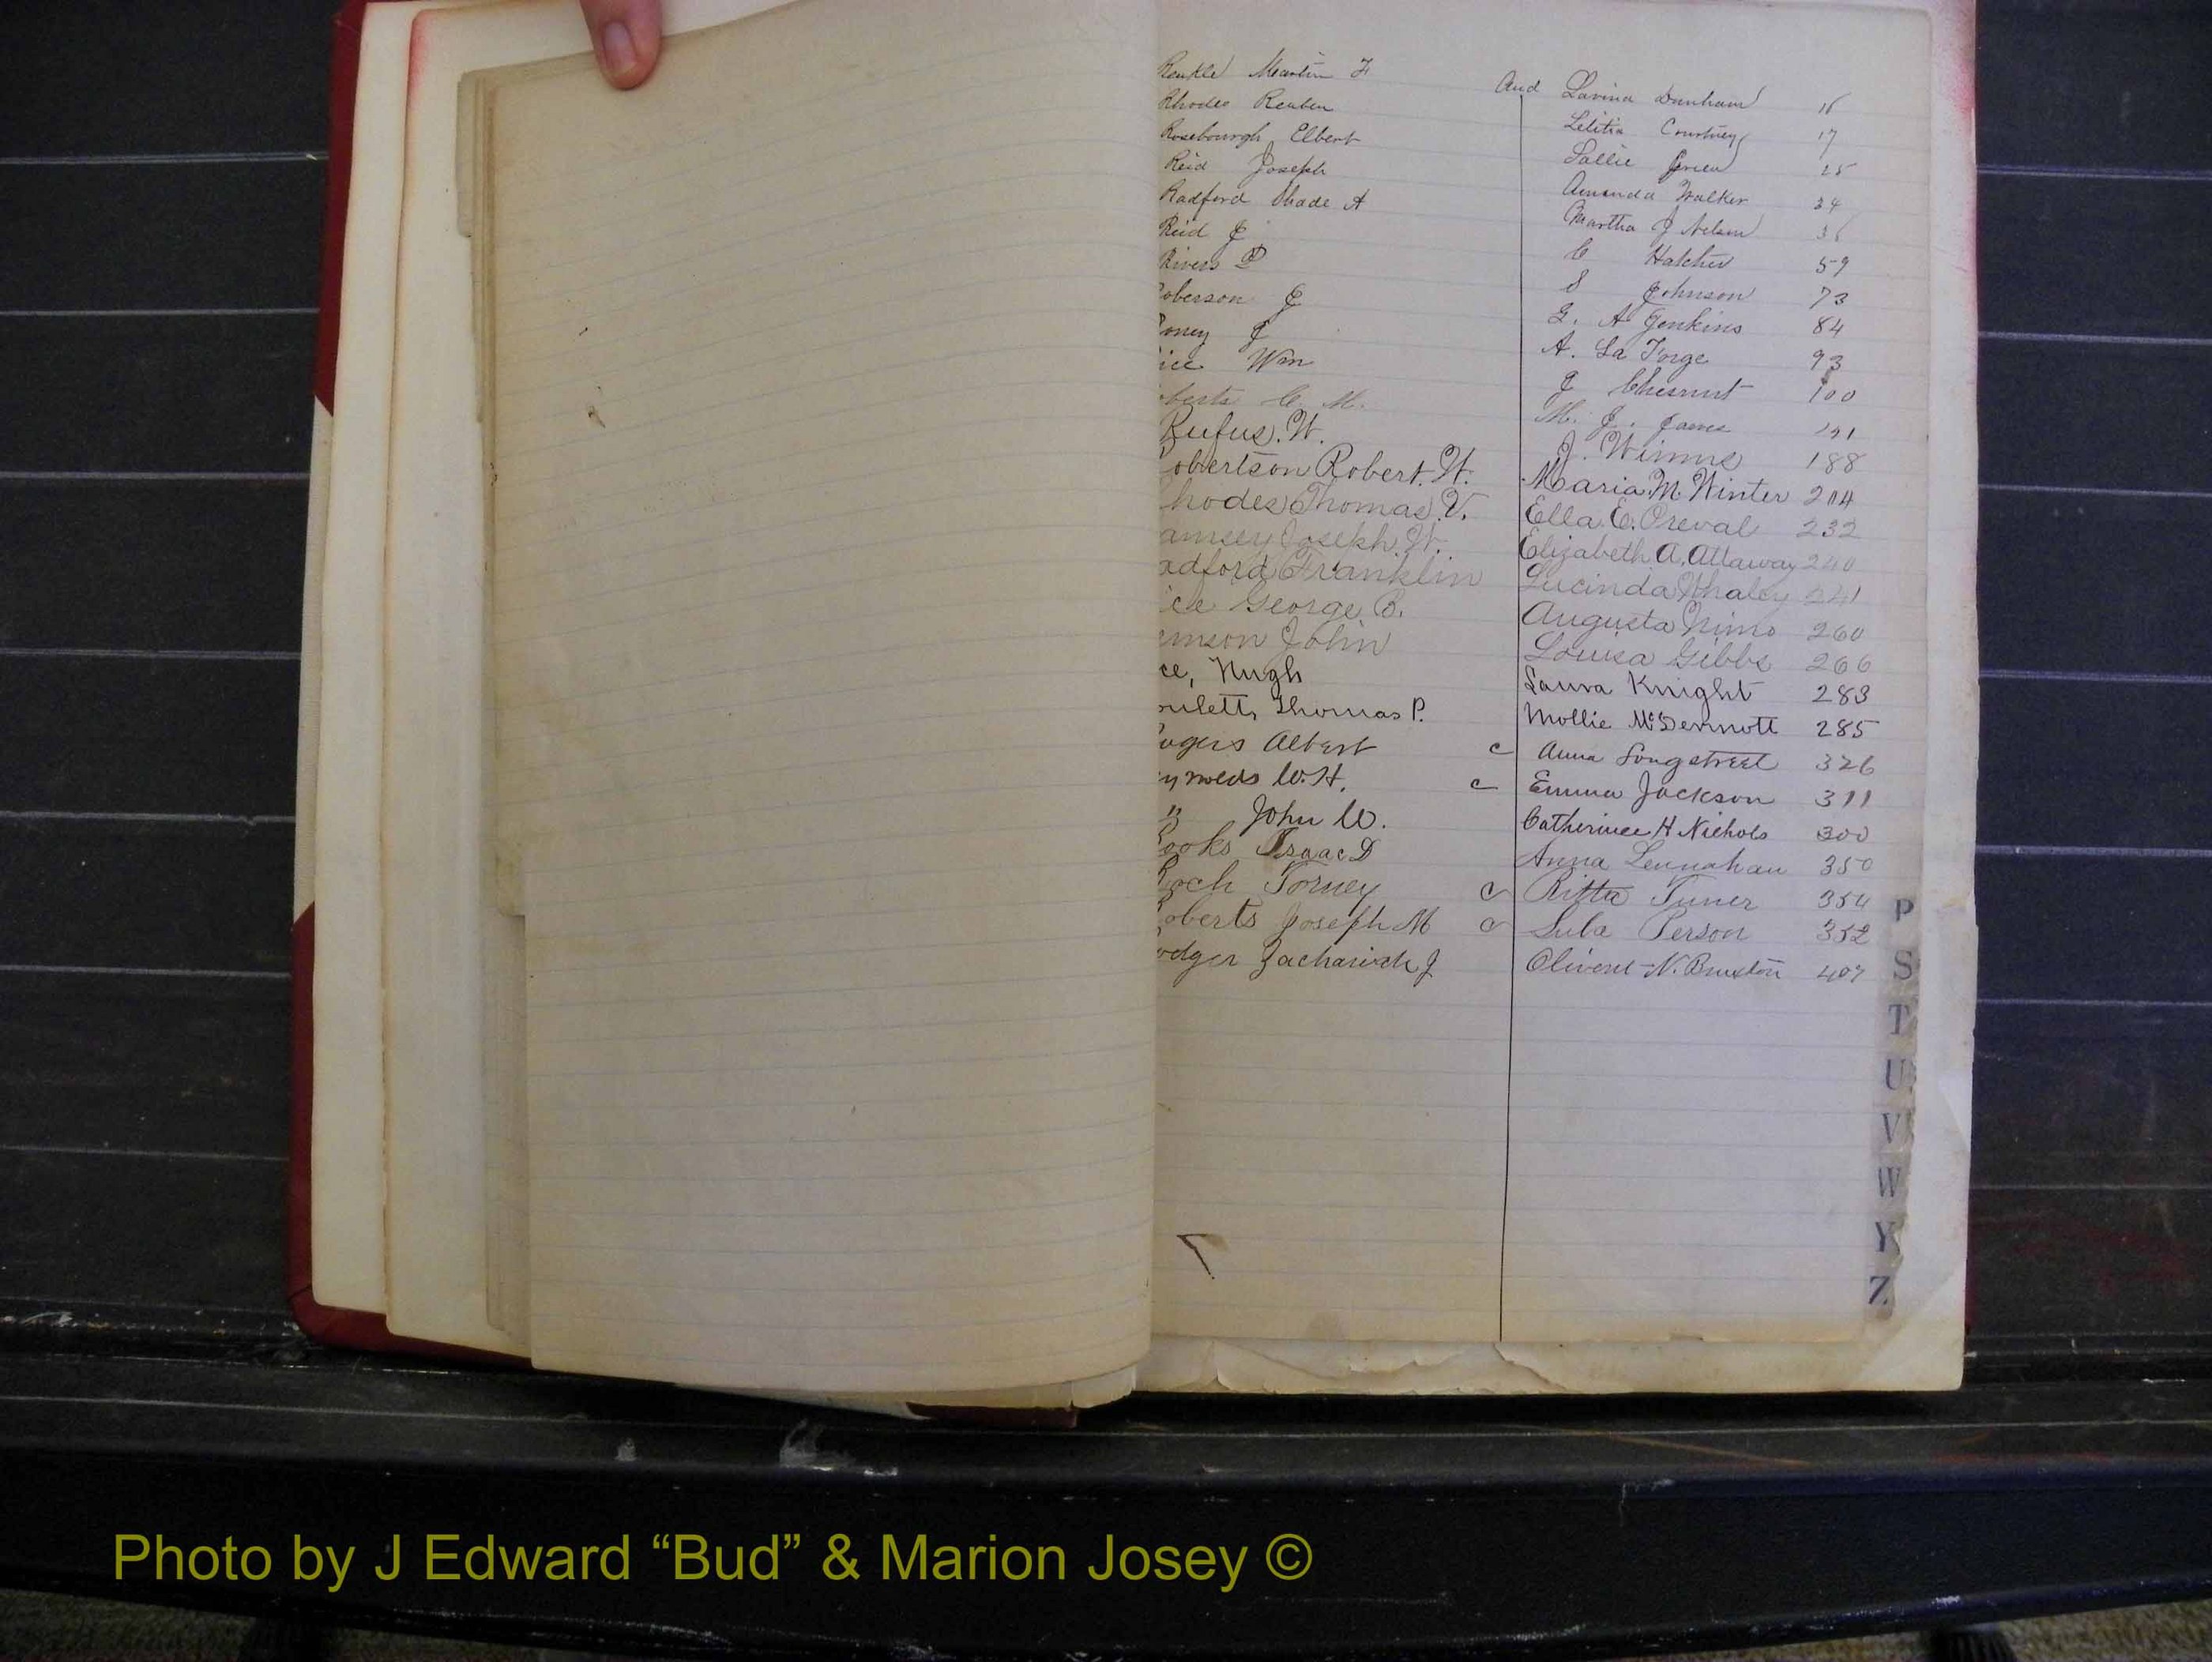 Martin F And Lavina Dunham 16
Rhodes Reuben Letitia Courtney 17
Rosebourgh Elbert Sallie Green 25
Reid Joseph Amanda Walker 34
Radford Shade A Martha J Nelson
Reid J C Hatcher 59
Rivers P S Johnson 73
oberson J G. A Jenkins 84
oney J A. La Forge 93
ice Wm J Chesnut 100
oberts C. M. M. J. James 191
Rufus. W. J. Winns 188
obertson Robert. W. Maria. M. Winter 204
hodes Thomas. V. Ella. E. Preval 232
amsey Joseph. W. Elizabeth A. Attaway 240
adford Franklin Lucinda Whaley 241
ice George B. Augusta Nims 260
inson John Louisa Gibbs 266
ce, Hugh Laura Knight 283
oulett, Thomas P. Mollie McDermott 285
ogers Albert c Anna Longstreet 326
eynolds W. H. c Emma Jackson 311
" John W. Catherinee H Nichols 300
ooks Isaac D Anna Lennahan 350
Roch Torney c Ritta Turner 354
Roberts Joseph M c Lula Person 352
odger Zachariah J N. Bruxton 407
P
S
T
U
V
W
Y
Z
Photo by J Edward “Bud” & Marion Josey ©